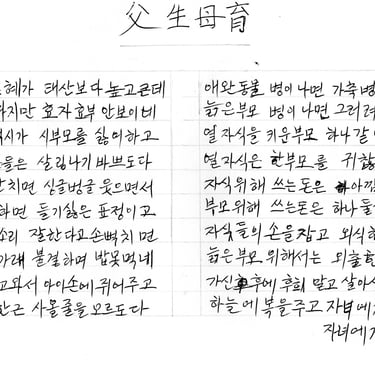 父生母育
혜가 태산보다 높고큰데
지만 효자효부 안보이네
시가 시부모를 싫어하고
들은 살림나기 바쁘도다
치면 싱글벙글 웃으면서
하면 듣기싫은 표정이고
소리 잘한다고 손뼉치면
가래 불결하며 밥못먹네
고와서 아이손에 쥐어주고
한근 사올줄을 모르도다
애완동물 병이나면 가축병
늙은부모 병이나면 그러려
열자식을 키운부모 하나같
열자식은 한부모를 귀찮
자식위해 쓰는돈은 아까
부모위해 쓰는돈은 하나둘
자식들의 손을잡고 외식
늙은부모 위해서는 외출
가신후에 후회말고 살아
하늘에 복을주고 자녀에
자녀에게